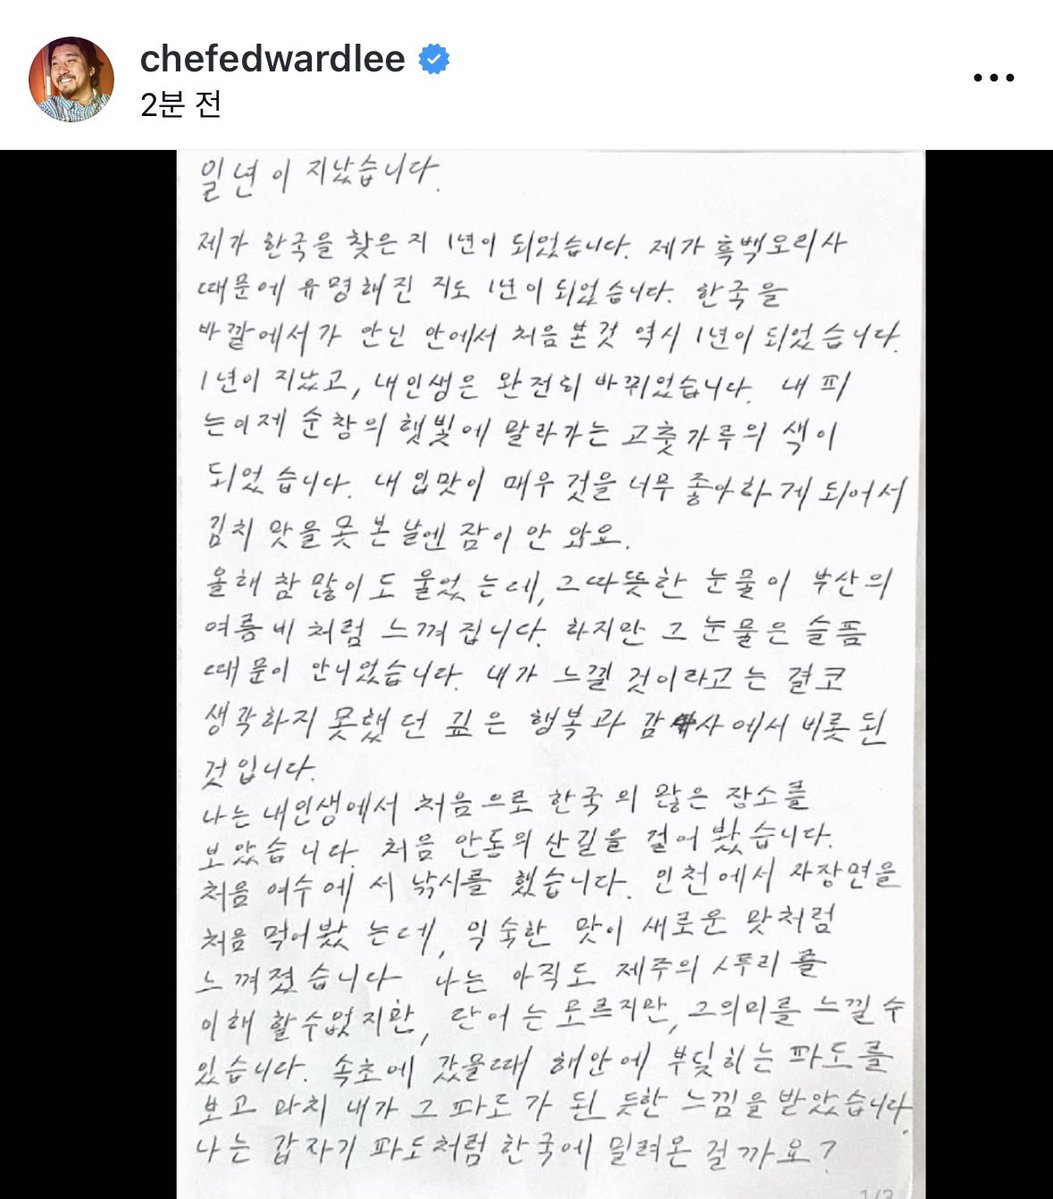 chefedwardlee
2분 전
일년이 지났습니다.
제가 한국을 찾은지 1년이 되었습니다. 제가 흑백요리사
때문에 유명해진 지도 1년이 되었습니다. 한국을
바깥에서가 안닌 안에서 처음 본것 역시 1년이 되었습니다.
1년이 지났고, 내인생은 완전히 바뀌었습니다. 내 피
는이제 순창의 햇빛에 말라가는 고춧가루의 색이
되었습니다. 내 입맛이 매우 것을 너무 좋아하게 되어서
김치 맛을 못 본 날엔 잠이 안 와요.
올해 참 많이도 울었는데, 그따뜻한 눈물이 부산의
여름비처럼 느껴집니다. 하지만 그 눈물은 슬픔
때문이 안니었습니다. 내가 느낄 것이라고는 결코
생각하지 못했던 깊은 행복과 감사에서 비롯된
것입니다.
나는 내인생에서 처음으로 한국의 많은 장소를
보았습니다. 처음 안동의 산길을 걸어봤습니다.
처음 여수에서 낚시를 했습니다. 인천에서 자장면을
처음 먹어봤는데, 익숙한 맛이 새로운 맛처럼
느껴졌습니다 나는 아직도 제주의 사투리를
이해 할수없지만, 단어는 모르지만, 그의미를 느낄 수
있습니다. 속초에 갔을때 해안에 부딪히는 파도를
보고 마치 내가 그 파도가 된 듯한 느낌을 받았습니다.
나는 갑자기 파도처럼 한국에 밀려온 걸까요?
1/3